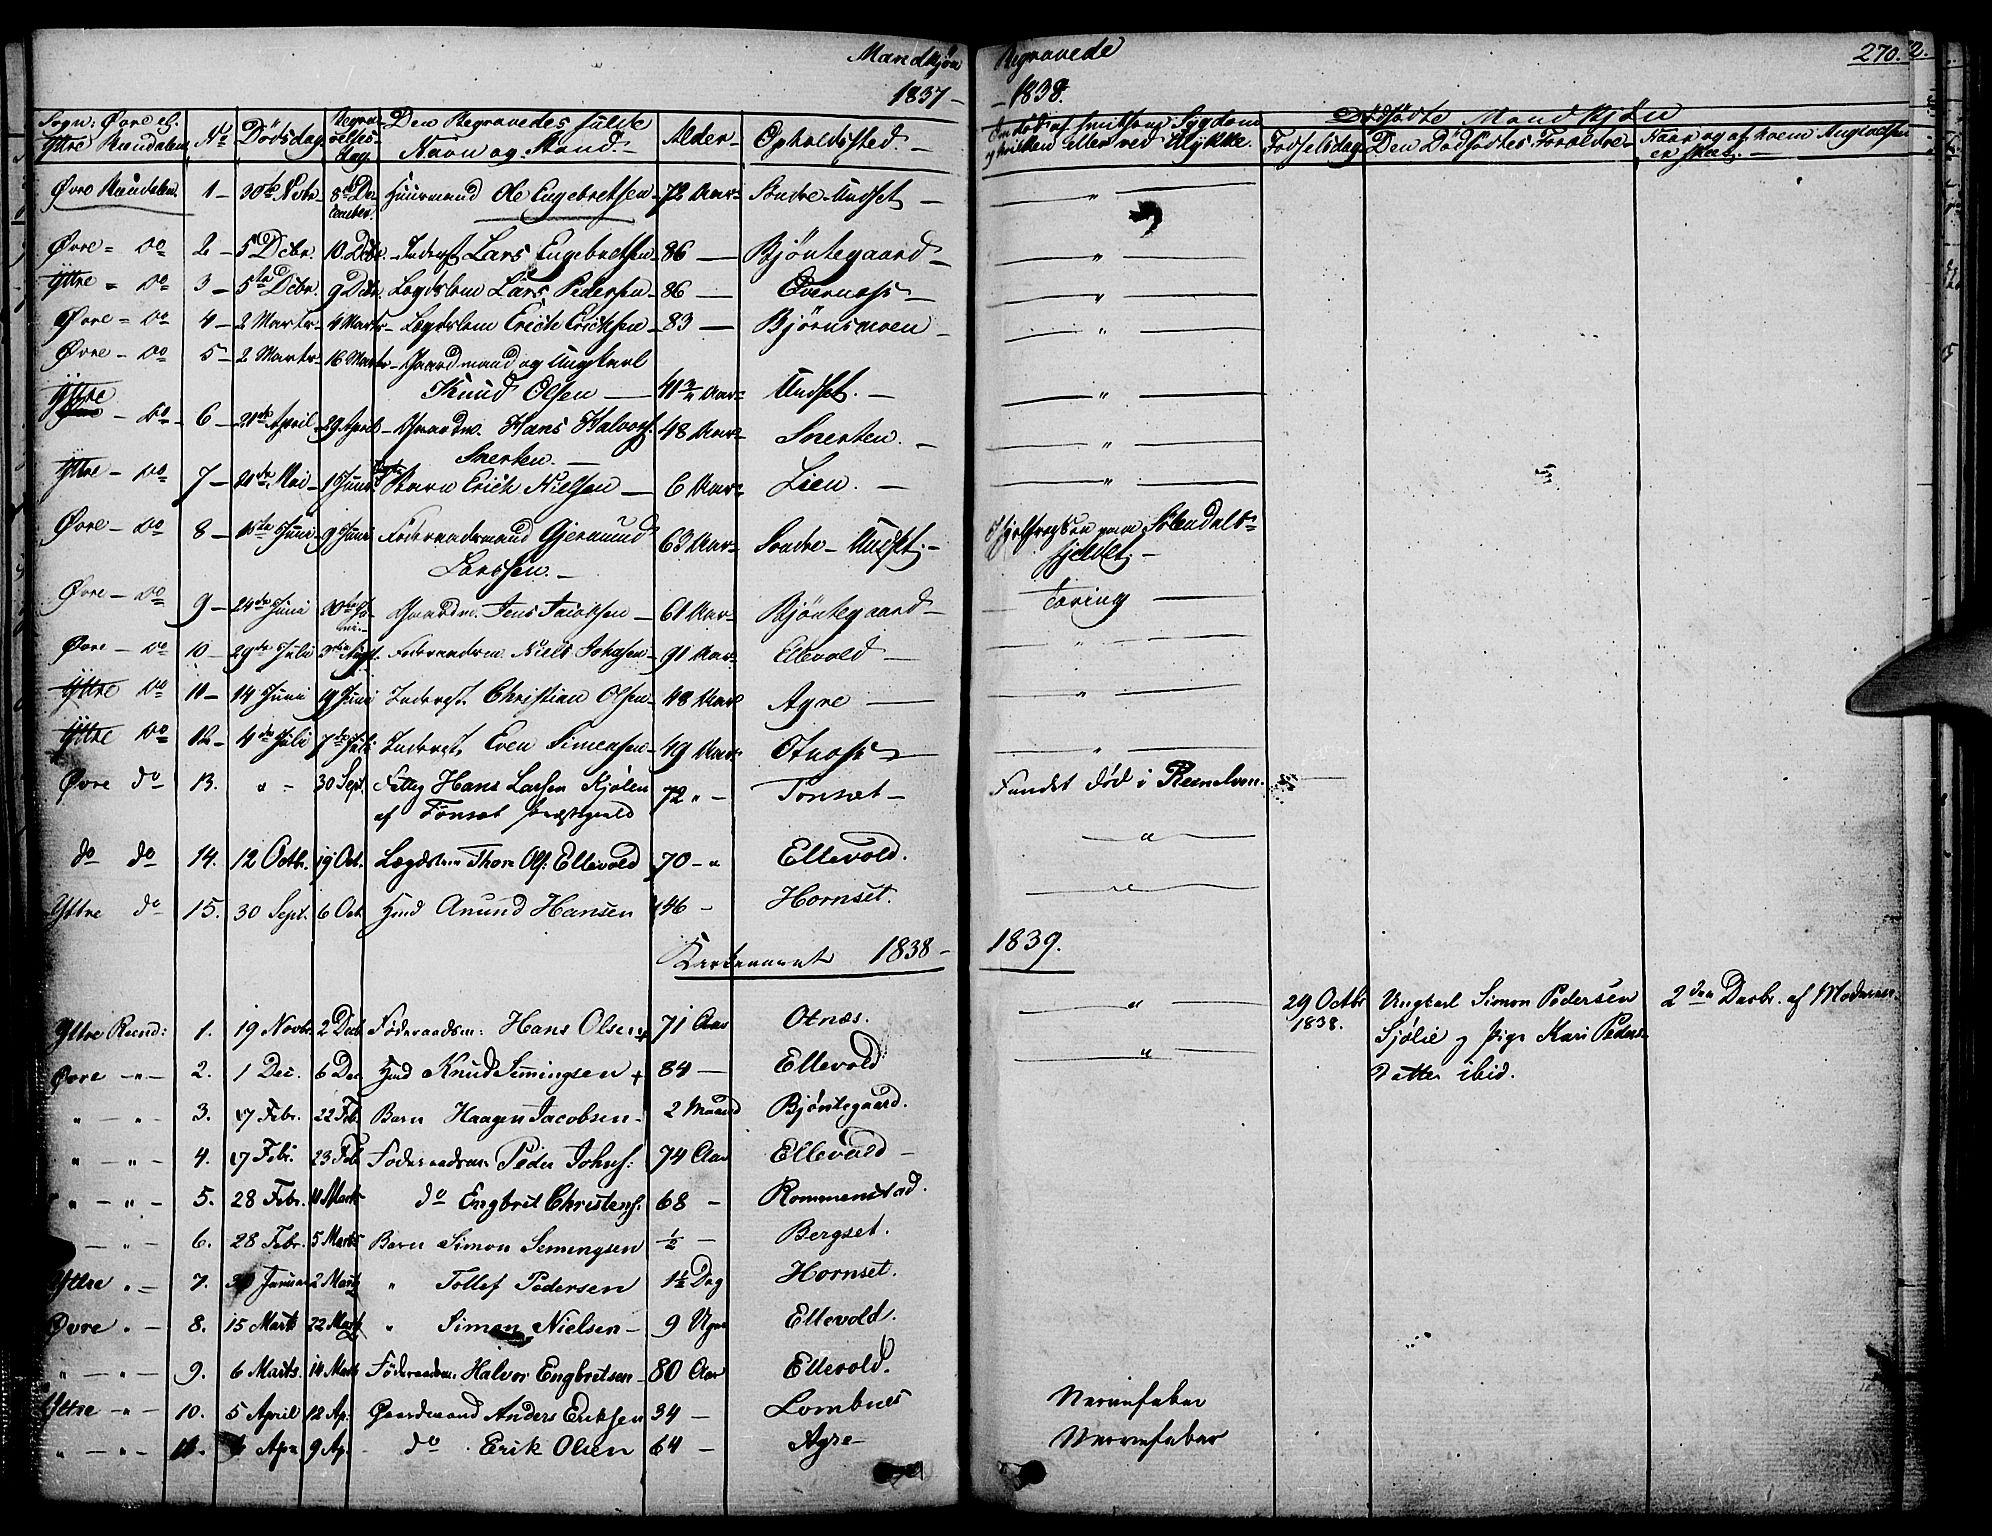 Mandkjøn Begravede 270.
1837 - 1838.
Sogn: Øvre el. Yttre Rendalen. No Dødsdag Begravelses-dag. Den Begravedes fulde Navn og Stand. Alder Opholdssted Dødfødte Mandkjøn
Fødselsdag Den Dødfødtes Forældre
Øvre Rendalen. 1 - 30te Nvbr 8de December. Huusmand Ole Engebretsen 72 Aar Søndre Undset - "
Øvre - do 2 - 5 Dcbr. 10 Dcbr. Inderst Lars Engebretsen 86 - Bjøntegaard - "
Yttre - do 3 - 5te Dcbr. 9 Dcbr. Lægdslem Lars Pedersen 86 - Qvernæss - "
Øvre - do 4 - 2 Marts 4 Marts Lægdslem Erich Erichsen 83 - Bjørnsmoen - "
Øvre - do 5 - 2 Marts 16 Marts Gaardmand og Ungkarl
Knud Olsen - 41 Aar Undset. - "
Yttre - do - 6 - 21de April 29 April Gaardm. Hans Halvors. 48 Aar Snerten. - "
Snerten. -
Yttre - do 7 - 21de Mai 1 Juni Barn Erich Nielsen - 6 Aar Lien. - "
Øvre - do 8 - Juni 9 Juni Føderaadsmand Gjermund 63 Aar Søndre - Undset. - Sølendals
Larssen. - fjeldet. -
Øvre - do 9 - 24de Juni 30te Juni. Gaardm. Jens Jacobsen - 61 Aar Bjøntegaard - Tæring
Øvre - do 10 - 29de Juli Aug. Føderaadsm. Niels Johnsen 91 Aar Ellevold - "
Yttre do 11 - 14 Juni 19 Juni Inderst. Christian Olsen 48 Aar Agre - "
Yttre do 12 - 4de Juli 7de Juli Inderst. Even Simensen 49 Aar Otnæss - "
Øvre do 13. " - 30 Sept. Fattig Hans Larsen Kjølen 72 " - Tønset - Fundet død i Renelven.
af Tønset Præstegjeld
do do 14. 12 Octb. 19 Oct. Lægdslem Thore Ols: Ellevold 70 - " Ellevold. "
Yttre do 15. 30 Sept. 6 Oct. Hmd Anund Hansen 46 - Hornset. "
Kirkeaaret 1838 - 1839.
Yttre Rend: 1. 19 Novbr. 2 Decb Føderaadsm: Hans Olsen + 71 Aar Otnæs. " 29 Octbr Ungkarl Simon Pedersen 2den Dasbr. af Moderen.
1838. Sjølie og Pige Kari Peders
Øvre " - 2. 1 Dec. 6 Dec Hmd Knud Simingsen + 84 - Ellevold " Datter ibid.
" - " - 3. 17 Febr. 22 Feb Barn Haagen Jacobsen - 2 Maaned Bjøntegaard.
" - " - 4. 17 Febr. 23 Feb Føderaadsm. Peder Johns: 74 Aar Ellevold -
" - " - 5. 28 Febr. 11 Marts do Engbrit Christens: 68 - Rommenstad.
- " - 6. 28 Febr. 5 Marts Barn Simon Semingsen ½ - Bergset.
Yttre " - 7. Januar 2 Marts " Tollef Pedersen 1½ Dag Hornset.
Øvre " - 8. 15 Marts 22 Marts " Simen Nielsen - 9 Uger Ellevold.
" - " - 9. 6 Marts. 14 Marts Føderaadsm. Halvor Engbritsen 80 Aar Ellevold.
Yttre - " - 10. 5 April 12 Ap. Gaardmand Anders Eriksen 34 - Lombnes Nervefeber
" - " - 11. Apr 9 Ap. - do. Erik Olsen 64 - Agre - Nervefeber